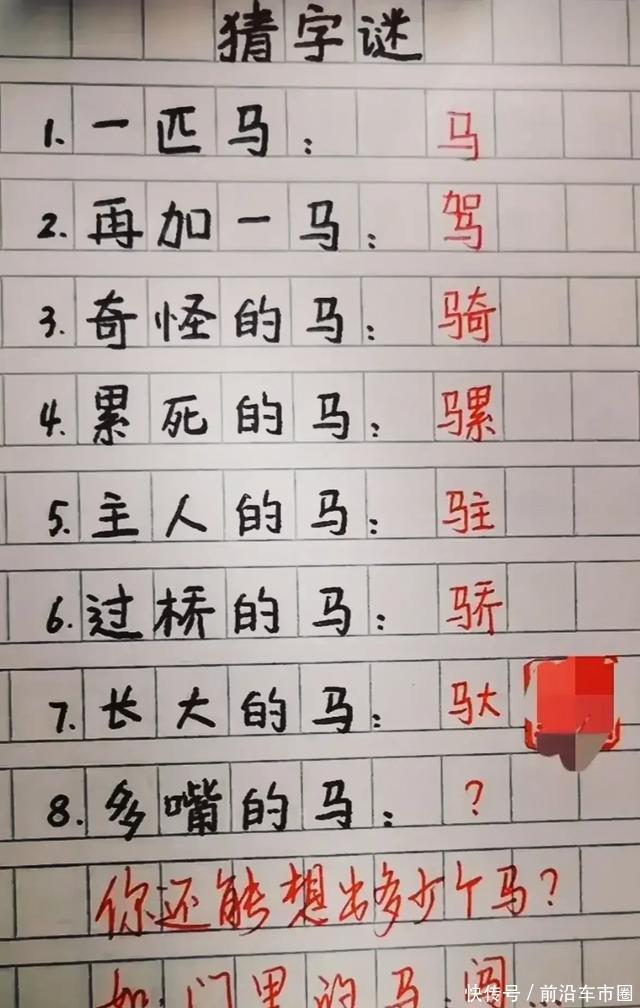 猜字谜
1. 一匹马： 马
2. 再加一马： 驾
3. 奇怪的马： 骑
4. 累死的马： 骡
5. 主人的马： 驻
6. 过桥的马： 骄
7. 长大的马： 驮
8. 多嘴的马： ？
你还能想出多少个马？
如：门里的马 闯...
快传号／前沿车市圈